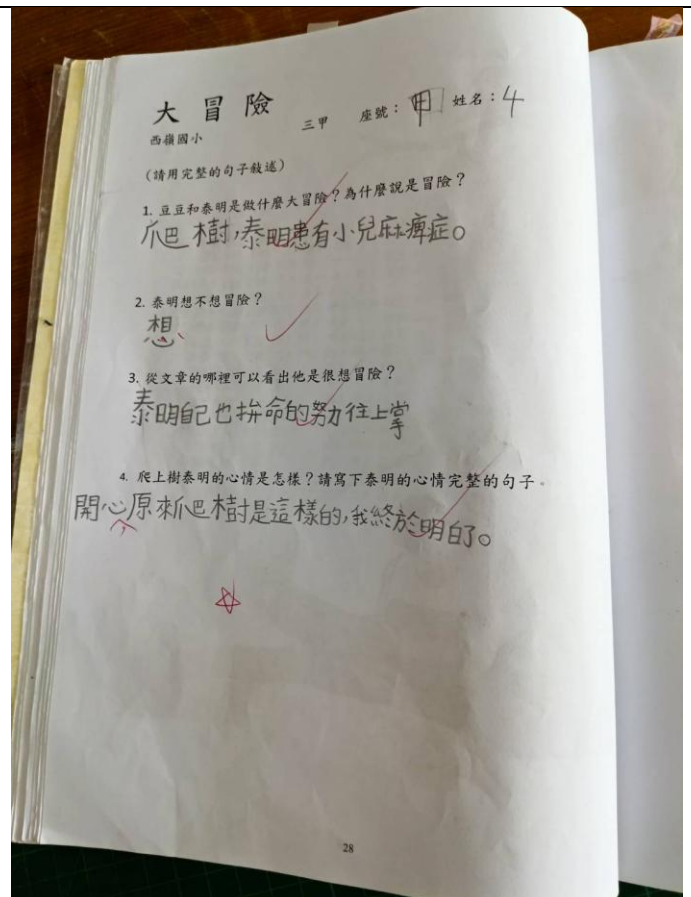 大冒險
西嶺國小 三甲 座號：甲 姓名：4
(請用完整的句子敘述)
1. 豆豆和泰明是做什麼大冒險？為什麼說是冒險？
爬樹，泰明患有小兒麻痺症。
2. 泰明想不想冒險？
想、
3. 從文章的哪裡可以看出他是很想冒險？
泰明自己也拚命的努力往上掌
4. 爬上樹泰明的心情是怎樣？請寫下泰明的心情完整的句子。
開心原來爬樹是這樣的，我終於明白了。
28